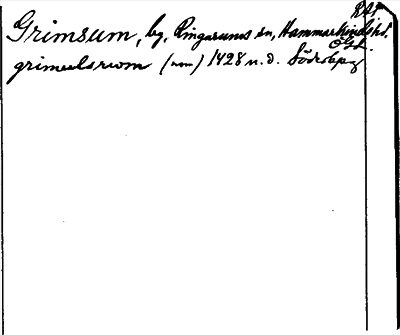 RAP
Grimsum, by, Ringarums sn, Hammarkinds hd.
Ögl.
grimulsrwm (um) 1428 n. d. Söderkpg